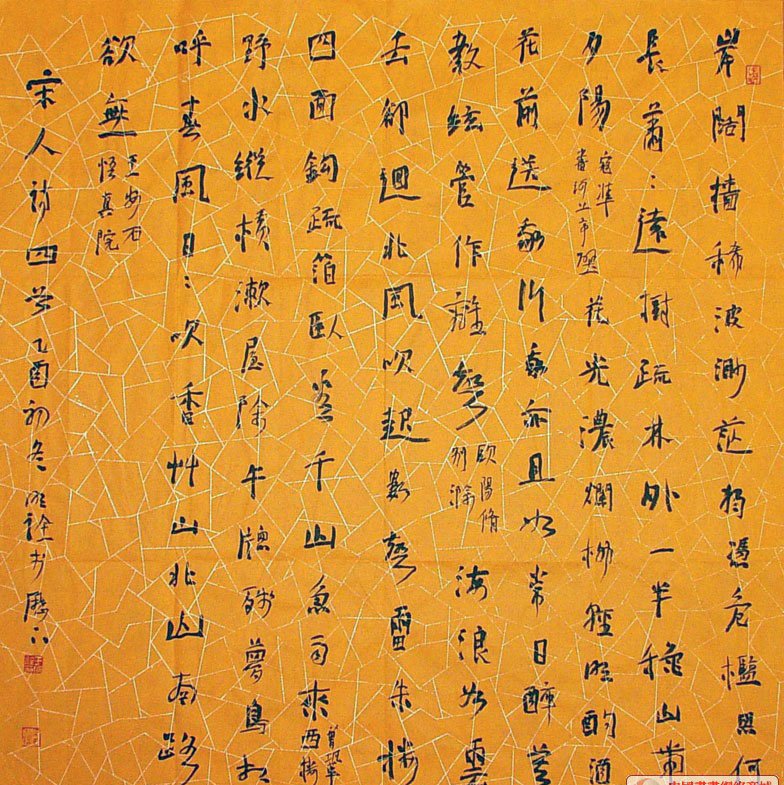 岸闊檣稀波渺茫獨憑危檻思何
長蕭〻遠樹疏林外一半穐山帶
夕陽 寇準 書河上亭壁 花光濃爛柳輕明酌酒
花前送我行我亦且如常日醉莫
教絃管作離聲 歐陽脩 別滁 海浪如雲
去卻迴北風吹起數聲雷朱樓
四面鈎疏箔臥看千山急雨來 曾鞏 西樓
野水縱橫漱屋除午牕殘夢鳥相
呼春風日〻吹香艸山北山南路
欲無 王安石 悟真院
宋人詩四首乙酉初冬明詮書歷下